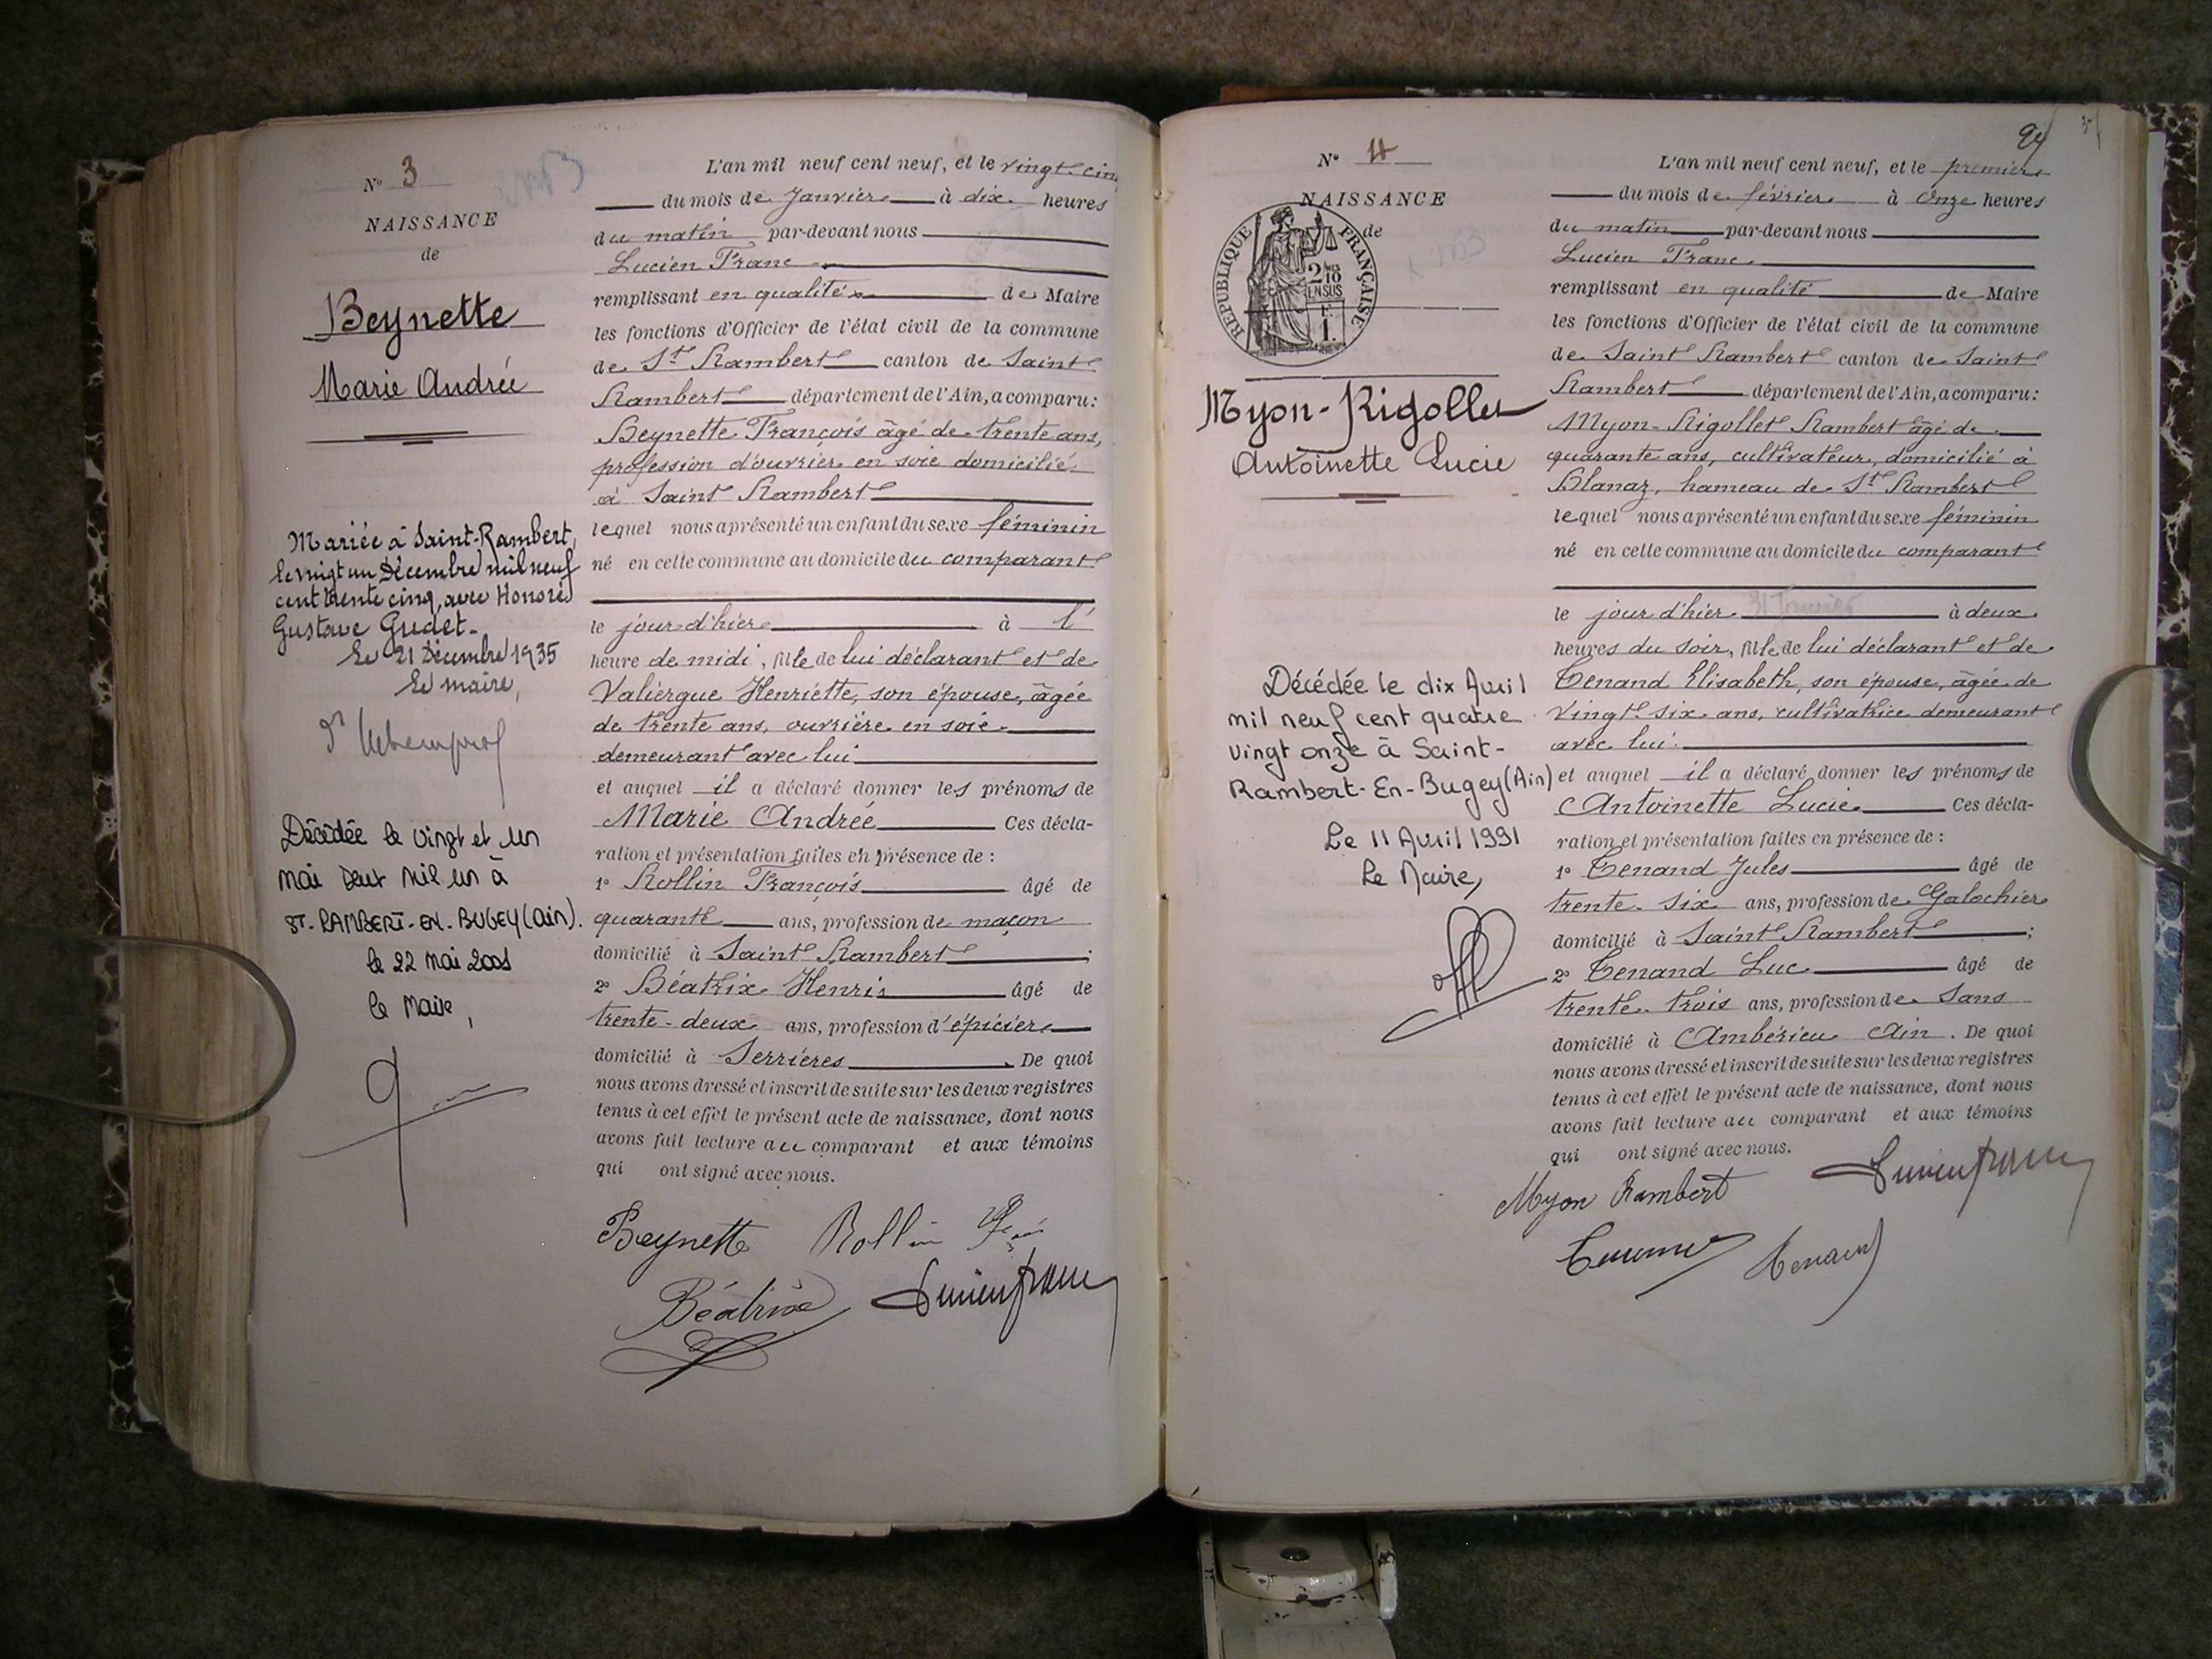 N° 3
NAISSANCE
de
Beynette
Marie Andrée
Mariée à Saint-Rambert,
le vingt un Décembre mil neuf
cent trente cinq, avec Honoré
Gustave Gudet-
Le 21 Décembre 1935
Le maire,
Décédée le vingt et un
mai deux mil un à
ST-RAMBERT-EN-BUGEY (Ain).
le 22 mai 2001
le Maire,
L'an mil neuf cent neuf, et le vingt-cinq
du mois de Janvier à dix heures
du matin par-devant nous
Lucien Franc
remplissant en qualité de Maire
les fonctions d'Officier de l'état civil de la commune
de St Rambert canton de Saint
Rambert département de l'Ain, a comparu:
Beynette François âgé de trente ans,
profession d'ouvrier en soie domicilié
à Saint Rambert
lequel nous a présenté un enfant du sexe féminin
né en cette commune au domicile du comparant
le jour d'hier à l'
heure de midi, fille de lui déclarant et de
Valiergue Henriette, son épouse, âgée
de trente ans, ouvrière en soie
demeurant avec lui
et auquel il a déclaré donner les prénoms de
Marie Andrée Ces décla-
ration et présentation faites en présence de :
1° Rollin François âgé de
quarante ans, profession de maçon
domicilié à Saint Rambert ;
2° Béatrix Henri âgé de
trente-deux ans, profession d'épicier
domicilié à Serrières. De quoi
nous avons dressé et inscrit de suite sur les deux registres
tenus à cet effet le présent acte de naissance, dont nous
avons fait lecture au comparant et aux témoins
qui ont signé avec nous.
Beynette Rollin
Béatrix Lucien Franc
N° 4
NAISSANCE
de
REPUBLIQUE FRANÇAISE
2/10
EN SUS
1
Myon-Rigollet
Antoinette Lucie
Décédée le dix Avril
mil neuf cent quatre
vingt onze à Saint-
Rambert-En-Bugey (Ain)
Le 11 Avril 1991
Le Maire,
L'an mil neuf cent neuf, et le premier
du mois de février à onze heures
du matin par-devant nous
Lucien Franc
remplissant en qualité de Maire
les fonctions d'Officier de l'état civil de la commune
de Saint Rambert canton de Saint
Rambert département de l'Ain, a comparu:
Myon-Rigollet Rambert âgé de
quarante ans, cultivateur, domicilié à
Blanaz, hameau de St Rambert
lequel nous a présenté un enfant du sexe féminin
né en cette commune au domicile du comparant
le jour d'hier 31 Janvier à deux
heures du soir, fille de lui déclarant et de
Tenand Elisabeth, son épouse, âgée de
vingt-six ans, cultivatrice demeurant
avec lui.
et auquel il a déclaré donner les prénoms de
Antoinette Lucie Ces décla-
ration et présentation faites en présence de :
1° Tenand Jules âgé de
trente-six ans, profession de Galochier
domicilié à Saint Rambert ;
2° Tenand Luc âgé de
trente-trois ans, profession de Sans
domicilié à Ambérieu Ain. De quoi
nous avons dressé et inscrit de suite sur les deux registres
tenus à cet effet le présent acte de naissance, dont nous
avons fait lecture au comparant et aux témoins
qui ont signé avec nous.
Myon Rambert Lucien Franc
Tenand